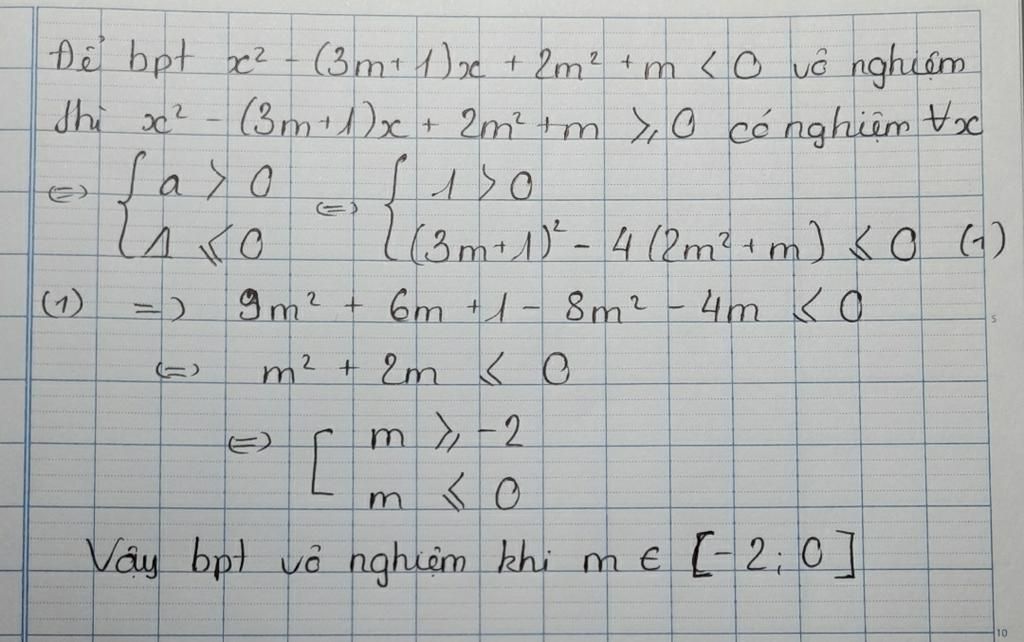 Để bpt x² - (3m+1)x + 2m² + m < 0 vô nghiệm
thì x² - (3m+1)x + 2m² + m ⩾ 0 có nghiệm ∀x
⇔ { a > 0 ⇔ { 1 > 0
{ 1 ⩽ 0 { (3m+1)² - 4(2m² + m) ⩽ 0 (1)
(1) => 9m² + 6m + 1 - 8m² - 4m ⩽ 0
⇔ m² + 2m ⩽ 0
⇔ [ m ⩾ -2
[ m ⩽ 0
Vậy bpt vô nghiệm khi m ∈ [-2; 0]
5
10